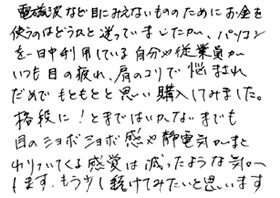 電磁波など目にみえないもののためにお金を
使うのはどうかと迷っていましたが、パソコン
を一日中利用している自分や従業員が
いつも目の疲れ、肩のコリで悩まされ
だめでもともとと思い購入してみました。
格段に！とまではいかないまでも
目のショボショボ感や静電気がまと
わりついてくる感覚は減ったような気が
します。もう少し続けてみたいと思います